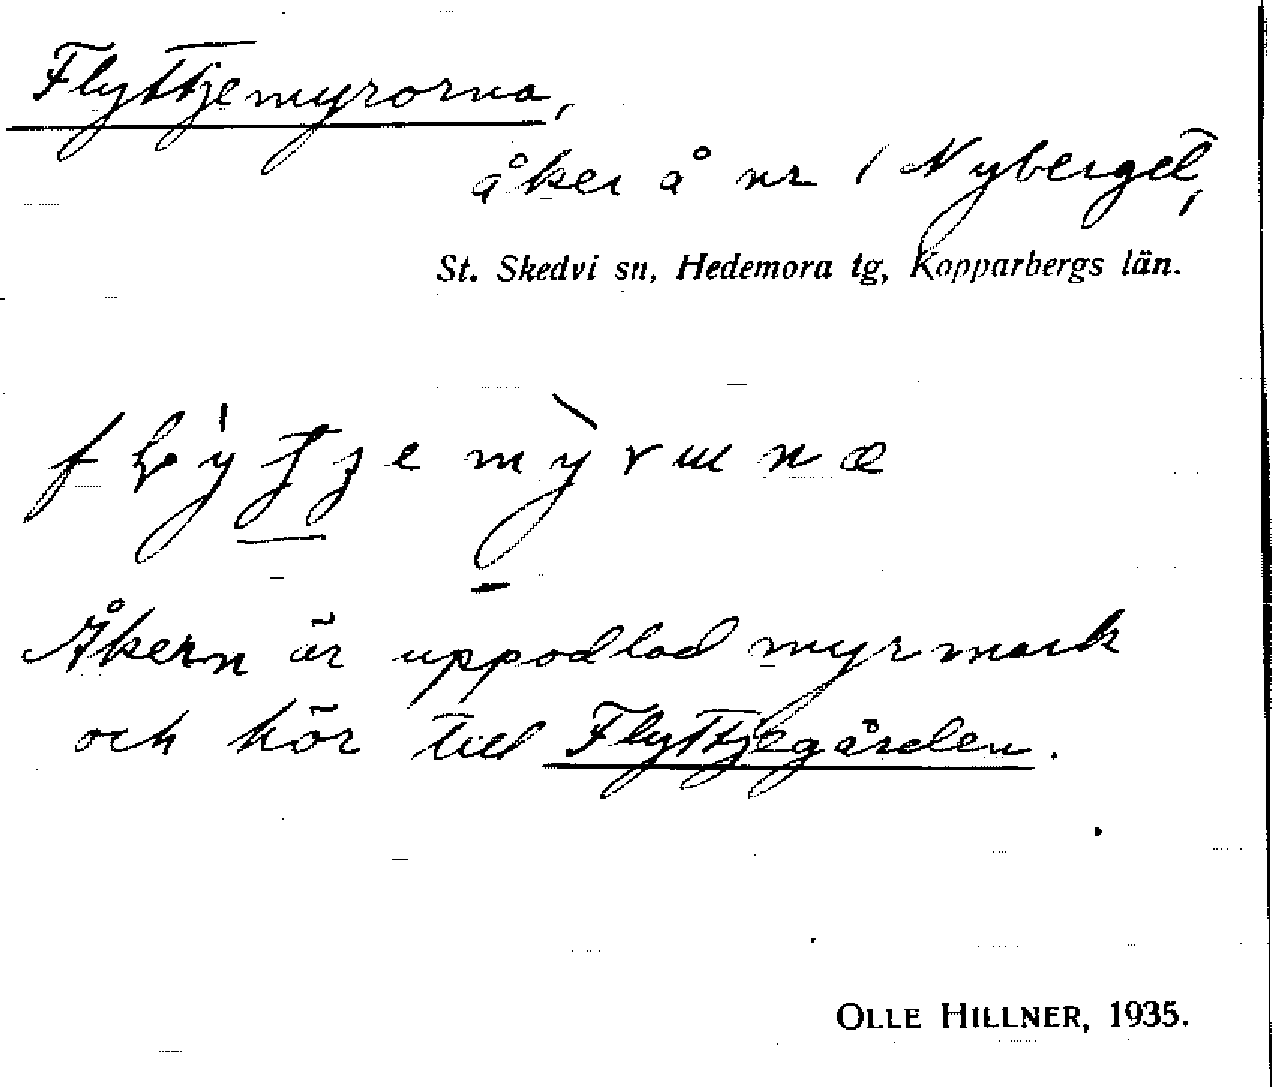 Flyttjemyrorna,
åker å nr 1 Nyberget,
St. Skedvi sn, Hedemora tg, Kopparbergs län.
Åkern är uppodlad myrmark
och hör till Flyttjegården.
OLLE HILLNER, 1935.